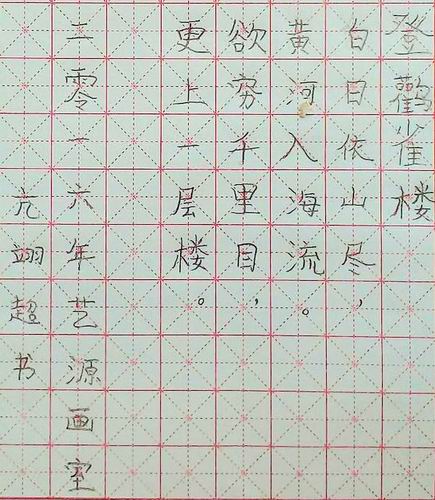 登鹳雀楼
白日依山尽，
黄河入海流。
欲穷千里目，
更上一层楼。
二零一六年艺源画室
亢翊超书